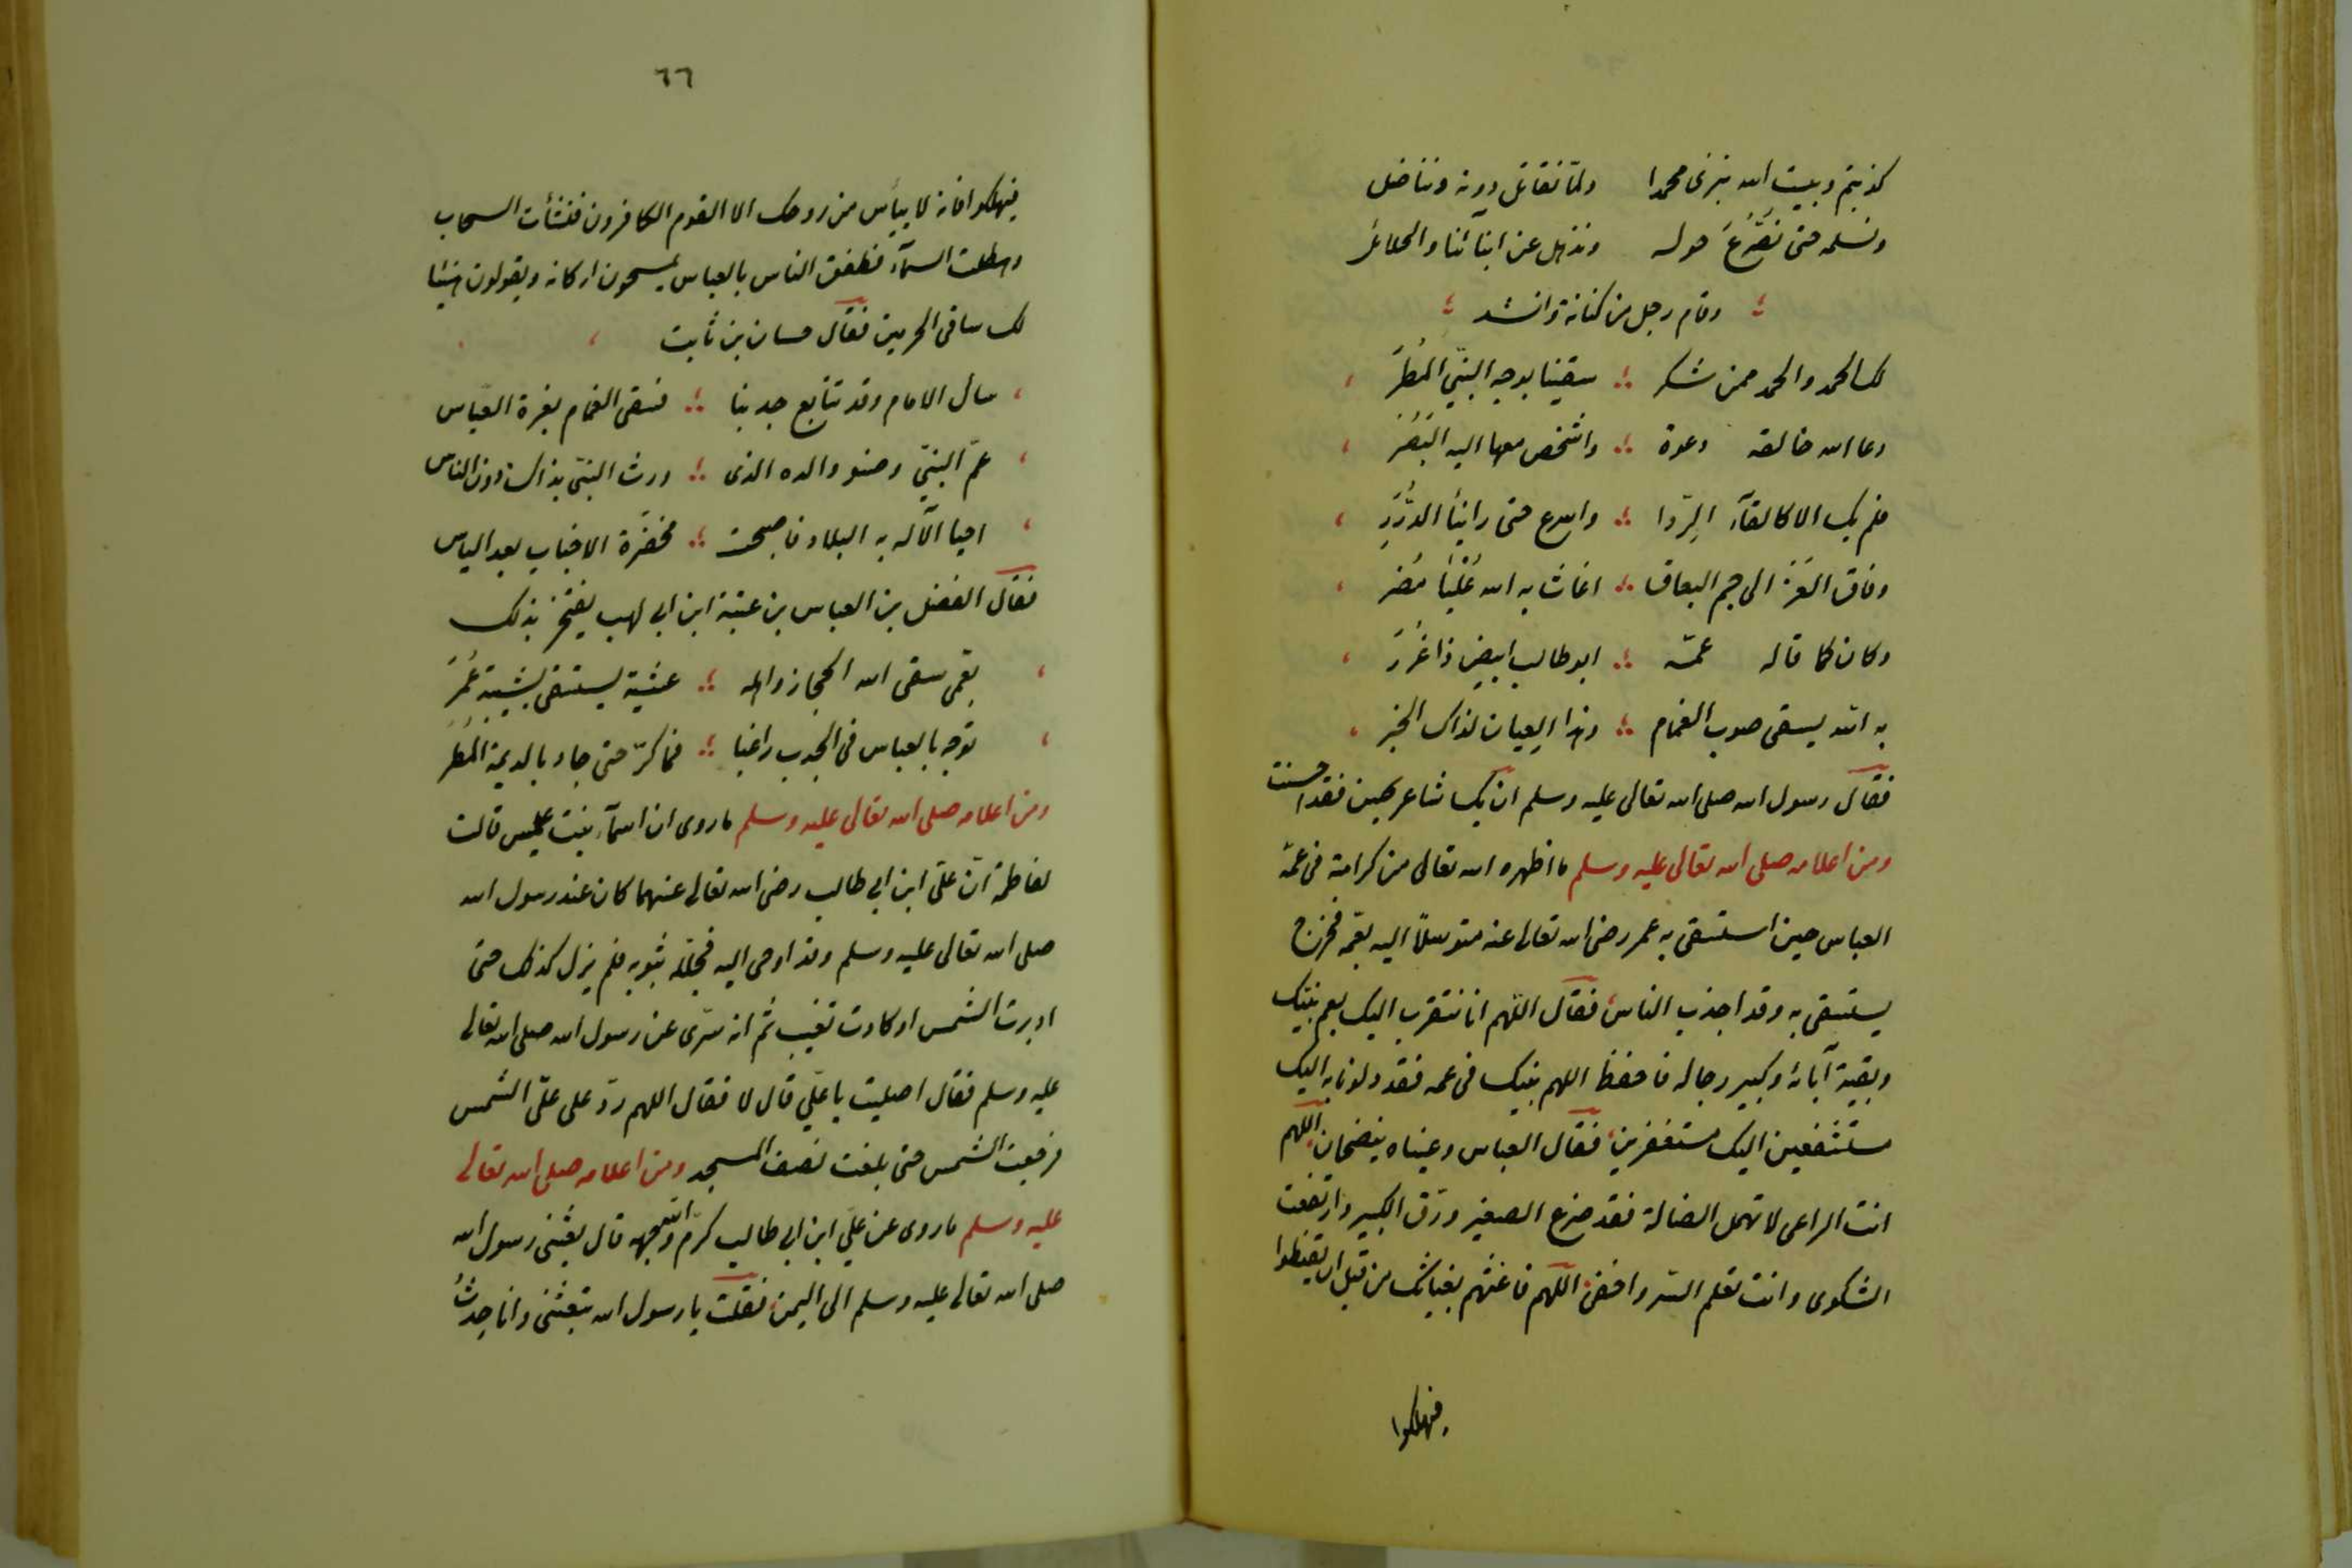 كذبتم وبيت الله نبزى محمدا ولمّا نقاتل دونه ونناضل
ونسلمه حتى نُصَرَّعَ حوله ونذهل عن ابنآئنا والحلائل
وقام رجل من كنانة وانشد
لك الحمد والحمد ممن شكر سقينا بوجه النبيّ المطَرْ
دعا الله خالقه دعوة واشخص معها اليه البَصَرْ
فلم يك الا كالقآء الرِّدا واسرع حتى راينا الدُّرَرْ
وفاق العُزَّ الى جم البعاق اغاث به الله عُلْيَا مُضَر
وكان كما قاله عمّه ابو طالب ابيض ذا غُرَرْ
به الله يسقى صوب الغمام وهذا العِيان لذاك الخبر
فقال رسول الله صلى الله تعالى عليه وسلم ان يك شاعر يحسن فقد احسنت
ومن اعلامه صلى الله تعالى عليه وسلم ما اظهره الله تعالى من كرامته فى عمّه
العباس حين استسقى به عمر رضى الله تعالى عنه متوسلاً اليه بعمّه فخرج
يستسقى به وقد اجذب الناس فقال اللّهم انا نتقرب اليك بعم نبيّك
وبقية آبائه وكبير رجاله فاحفظ اللهم نبيك فى عمه فقد دلونا به اليك
مستشفعين اليك مستغفرين فقال العباس وعيناه ينضحان اللهم
انت الراعى لا تهمل الضالة فقد ضرع الصغير ورّق الكبير وارتفعت
الشكوى وانت تعلم السّر واخفى اللّهم فاغثهم بغياثك من قبل ان يقنطوا
فيهلكوا
٦٦
فيهلكوا فانه لا ييأس من روحك الا القوم الكافرون فنشأت السحاب
وهطلت السمآء فطفق الناس بالعباس يمسحون اركانه ويقولون هنيئا
لك ساقى الحرمين فقال حسان بن ثابت
سأل الامام وقد تتابع جدبنا فسقى الغمام بغرة العبّاس
عمّ النبيّ وصنو والده الذى ورث النبيّ بذاك دون الناس
احيا الآله به البلاد فاصبحت مخضرّة الاجناب بعد الياس
فقال الفضل بن العباس بن عتبة ابن ابى لهب يفتخر بذلك
بعمى سقى الله الحجاز واهله عشية يستسقى بشيبته عُمَرْ
توجه بالعباس فى الجدب راغبا فما كرّ حتى جاد بالديمة المُطَرْ
ومن اعلامه صلى الله تعالى عليه وسلم ماروى ان اسمآء بنت عميس قالت
لفاطمة انّ علىّ ابن ابى طالب رضى الله تعالى عنهما كان عند رسول الله
صلى الله تعالى عليه وسلم وقد اوحى اليه فجلله بثوبه فلم يزل كذلك حتى
ادبرت الشمس او كادت تغيب ثم انه سرّى عن رسول الله صلى الله تعالى
عليه وسلم فقال اصليت يا علىّ قال لا فقال اللهم ردّ على علىّ الشمس
فرجعت الشمس حتى بلغت نصف المسجد ومن اعلامه صلى الله تعالى
عليه وسلم ماروى عن علىّ ابن ابى طالب كرّم الله وجهه قال بعثنى رسول الله
صلى الله تعالى عليه وسلم الى اليمن فقلت يا رسول الله تبعثنى وانا حدثٌ